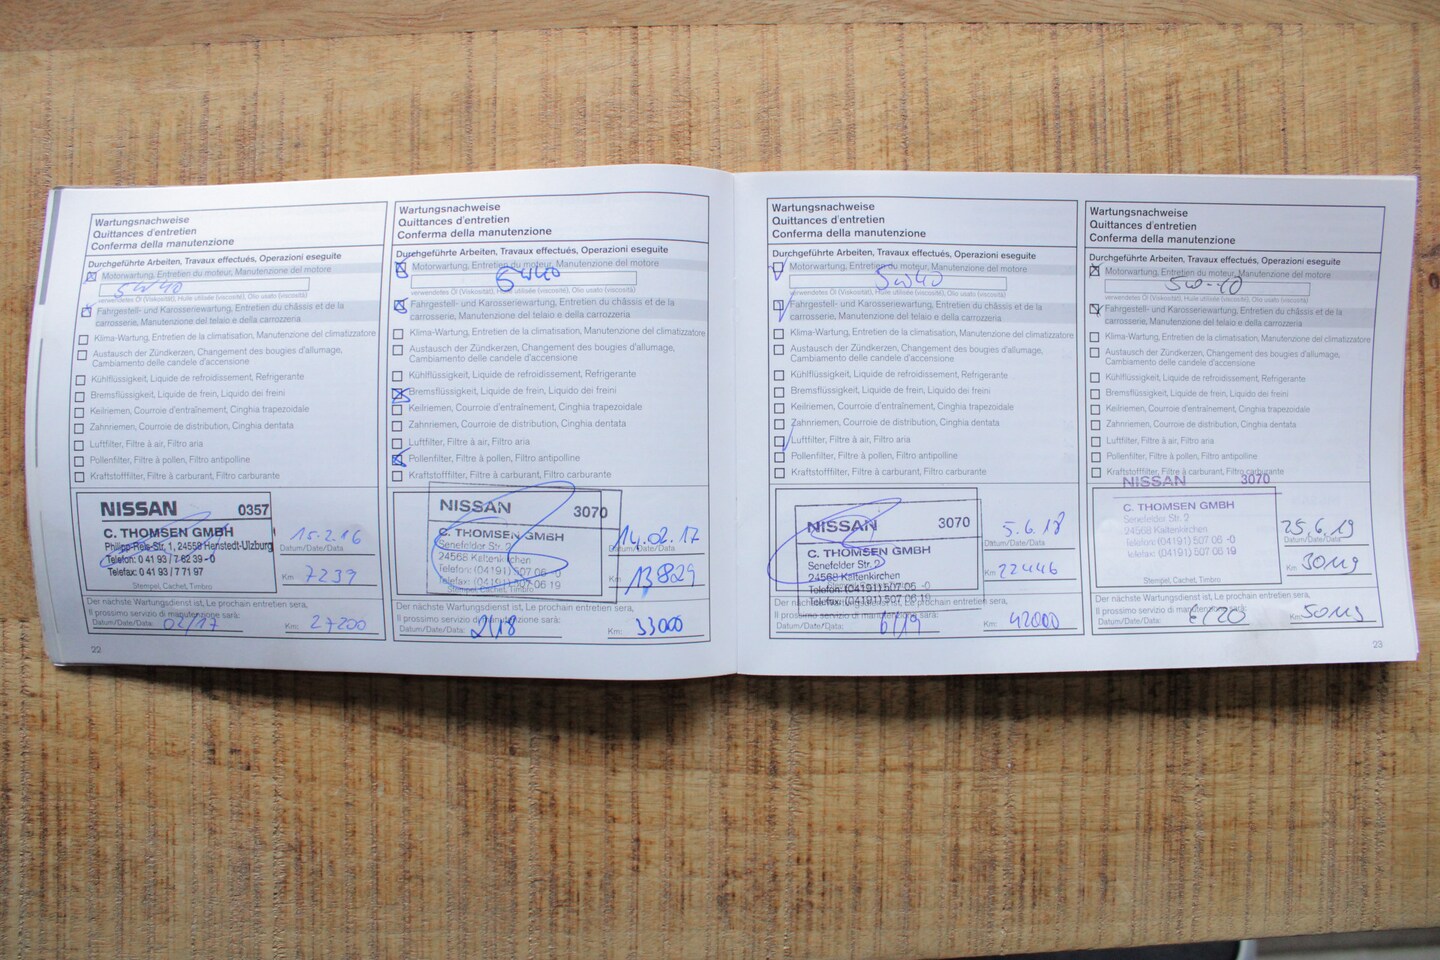 Wartungsnachweise
Quittances d'entretien
Conferma della manutenzione
Durchgeführte Arbeiten, Travaux effectués, Operazioni eseguite
Motorwartung, Entretien du moteur, Manutenzione del motore
5W40
verwendetes Öl (Viskosität), Huile utilisée (viscosité), Olio usato (viscosità)
Fahrgestell- und Karosseriewartung, Entretien du châssis et de la
carrosserie, Manutenzione del telaio e della carrozzeria
Klima-Wartung, Entretien de la climatisation, Manutenzione del climatizzatore
Austausch der Zündkerzen, Changement des bougies d'allumage,
Cambiamento delle candele d'accensione
Kühlflüssigkeit, Liquide de refroidissement, Refrigerante
Bremsflüssigkeit, Liquide de frein, Liquido dei freini
Keilriemen, Courroie d'entraînement, Cinghia trapezoidale
Zahnriemen, Courroie de distribution, Cinghia dentata
Luftfilter, Filtre à air, Filtro aria
Pollenfilter, Filtre à pollen, Filtro antipolline
Kraftstofffilter, Filtre à carburant, Filtro carburante
NISSAN 0357
C. THOMSEN GMBH
Philipp-Reis-Str. 1, 24558 Henstedt-Ulzburg
Telefon: 0 41 93 / 7 62 39 - 0
Telefax: 0 41 93 / 7 71 97
Stempel, Cachet, Timbro
15.2.16
Datum/Date/Data
Km 7239
Der nächste Wartungsdienst ist, Le prochain entretien sera,
Il prossimo servizio di manutenzione sarà:
Datum/Date/Data: 02/17 Km: 27200
22
Wartungsnachweise
Quittances d'entretien
Conferma della manutenzione
Durchgeführte Arbeiten, Travaux effectués, Operazioni eseguite
Motorwartung, Entretien du moteur, Manutenzione del motore
5W40
verwendetes Öl (Viskosität), Huile utilisée (viscosité), Olio usato (viscosità)
Fahrgestell- und Karosseriewartung, Entretien du châssis et de la
carrosserie, Manutenzione del telaio e della carrozzeria
Klima-Wartung, Entretien de la climatisation, Manutenzione del climatizzatore
Austausch der Zündkerzen, Changement des bougies d'allumage,
Cambiamento delle candele d'accensione
Kühlflüssigkeit, Liquide de refroidissement, Refrigerante
Bremsflüssigkeit, Liquide de frein, Liquido dei freini
Keilriemen, Courroie d'entraînement, Cinghia trapezoidale
Zahnriemen, Courroie de distribution, Cinghia dentata
Luftfilter, Filtre à air, Filtro aria
Pollenfilter, Filtre à pollen, Filtro antipolline
Kraftstofffilter, Filtre à carburant, Filtro carburante
NISSAN 3070
C. THOMSEN GMBH
Senefelder Str. 2
24568 Kaltenkirchen
Telefon: (04191) 507 06 -0
Telefax: (04191) 507 06 19
Stempel, Cachet, Timbro
14.02.17
Datum/Date/Data
Km 13829
Der nächste Wartungsdienst ist, Le prochain entretien sera,
Il prossimo servizio di manutenzione sarà:
Datum/Date/Data: 2/18 Km: 33000
Wartungsnachweise
Quittances d'entretien
Conferma della manutenzione
Durchgeführte Arbeiten, Travaux effectués, Operazioni eseguite
Motorwartung, Entretien du moteur, Manutenzione del motore
5W40
verwendetes Öl (Viskosität), Huile utilisée (viscosité), Olio usato (viscosità)
Fahrgestell- und Karosseriewartung, Entretien du châssis et de la
carrosserie, Manutenzione del telaio e della carrozzeria
Klima-Wartung, Entretien de la climatisation, Manutenzione del climatizzatore
Austausch der Zündkerzen, Changement des bougies d'allumage,
Cambiamento delle candele d'accensione
Kühlflüssigkeit, Liquide de refroidissement, Refrigerante
Bremsflüssigkeit, Liquide de frein, Liquido dei freini
Keilriemen, Courroie d'entraînement, Cinghia trapezoidale
Zahnriemen, Courroie de distribution, Cinghia dentata
Luftfilter, Filtre à air, Filtro aria
Pollenfilter, Filtre à pollen, Filtro antipolline
Kraftstofffilter, Filtre à carburant, Filtro carburante
NISSAN 3070
C. THOMSEN GMBH
Senefelder Str. 2
24568 Kaltenkirchen
Telefon: (04191) 507 06 -0
Telefax: (04191) 507 06 19
5.6.18
Datum/Date/Data
Km 22446
Der nächste Wartungsdienst ist, Le prochain entretien sera,
Il prossimo servizio di manutenzione sarà:
Datum/Date/Data: 6/19 Km: 42000
Wartungsnachweise
Quittances d'entretien
Conferma della manutenzione
Durchgeführte Arbeiten, Travaux effectués, Operazioni eseguite
Motorwartung, Entretien du moteur, Manutenzione del motore
5W-40
verwendetes Öl (Viskosität), Huile utilisée (viscosité), Olio usato (viscosità)
Fahrgestell- und Karosseriewartung, Entretien du châssis et de la
carrosserie, Manutenzione del telaio e della carrozzeria
Klima-Wartung, Entretien de la climatisation, Manutenzione del climatizzatore
Austausch der Zündkerzen, Changement des bougies d'allumage,
Cambiamento delle candele d'accensione
Kühlflüssigkeit, Liquide de refroidissement, Refrigerante
Bremsflüssigkeit, Liquide de frein, Liquido dei freini
Keilriemen, Courroie d'entraînement, Cinghia trapezoidale
Zahnriemen, Courroie de distribution, Cinghia dentata
Luftfilter, Filtre à air, Filtro aria
Pollenfilter, Filtre à pollen, Filtro antipolline
Kraftstofffilter, Filtre à carburant, Filtro carburante
NISSAN 3070
C. THOMSEN GMBH
Senefelder Str. 2
24568 Kaltenkirchen
Telefon: (04191) 507 06 -0
Telefax: (04191) 507 06 19
Stempel, Cachet, Timbro
25.6.19
Datum/Date/Data
Km 30119
Der nächste Wartungsdienst ist, Le prochain entretien sera,
Il prossimo servizio di manutenzione sarà:
Datum/Date/Data: 6/20 Km: 50119
23